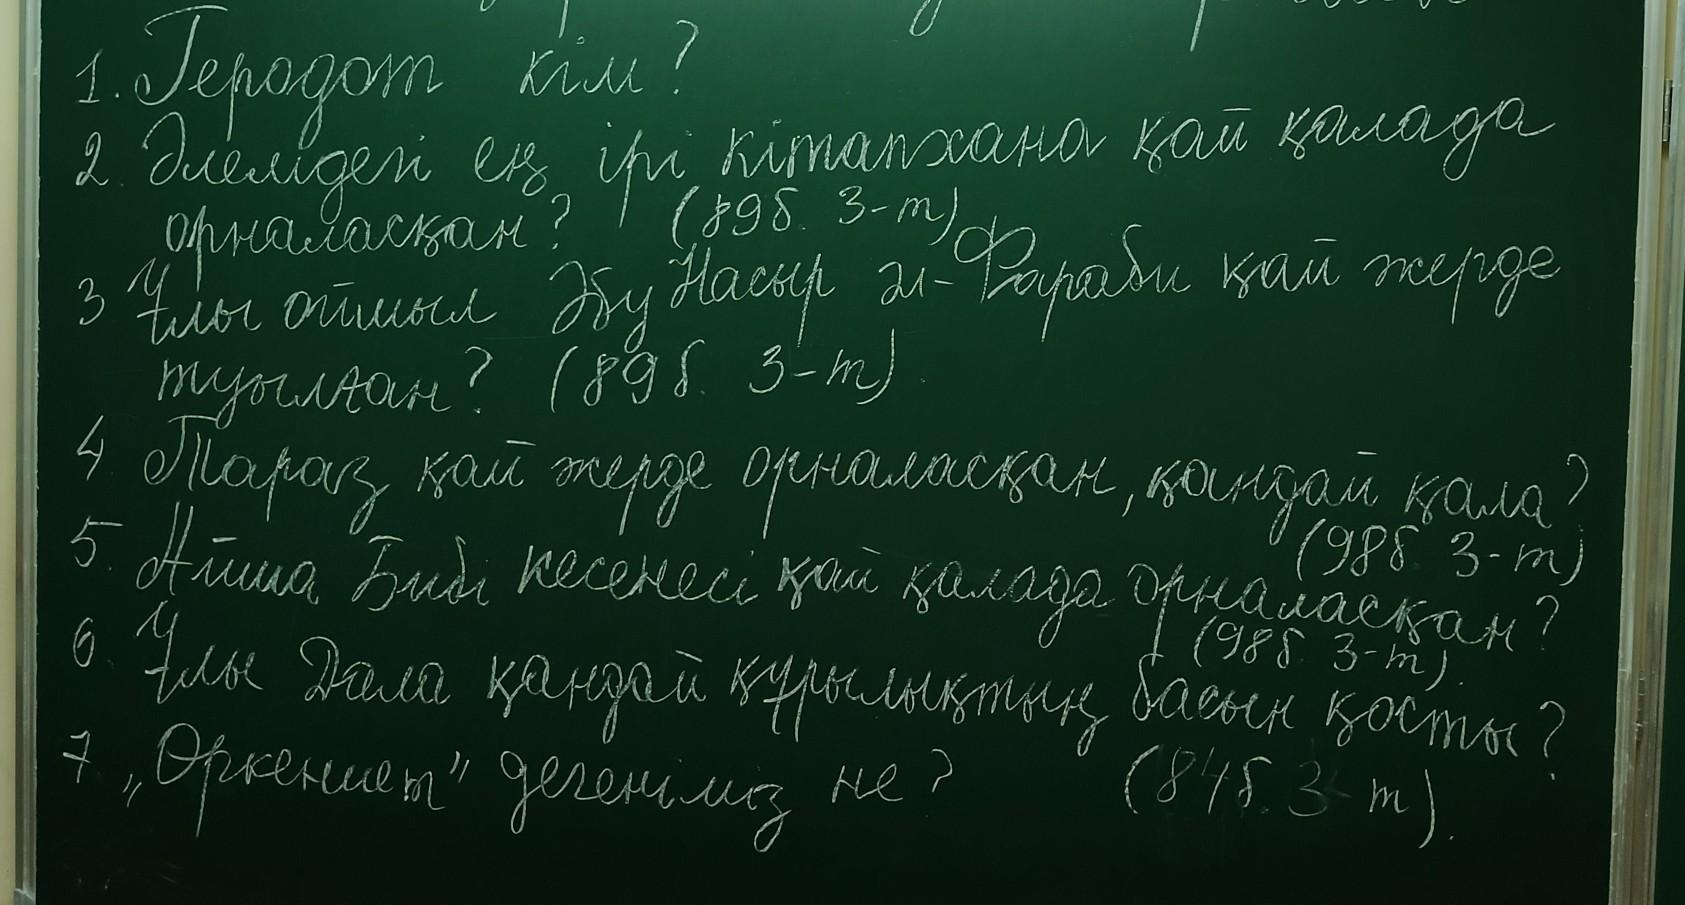 1. Геродот кім?
2. Әлемдегі ең ірі кітапхана қай қалада
орналасқан? (89б. 3-т)
3 Ұлы ойшыл Әбу Насыр әл-Фараби қай жерде
туылған? (89б. 3-т)
4 Тараз қай жерде орналасқан, қандай қала?
(98б. 3-т)
5. Айша Бибі кесенесі қай қалада орналасқан?
(98б. 3-т).
6. Ұлы Дала қандай құрылықтың басын қосты?
(84б. 3-т).
7 „Өркениет" дегеніміз не?